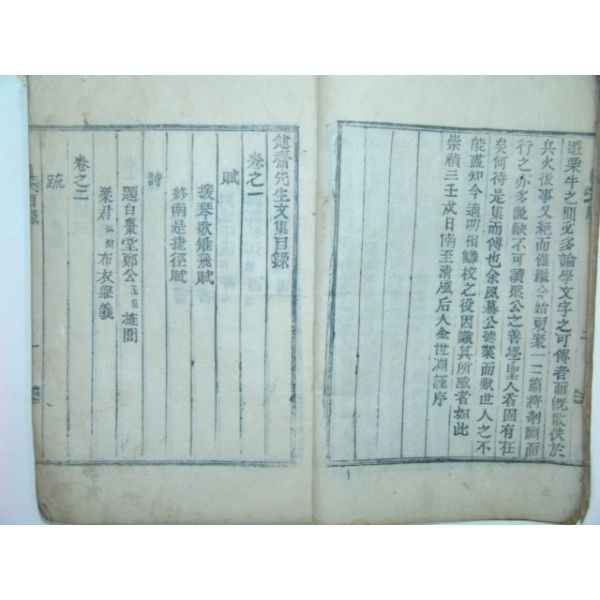 遊栗牛之間必多論學文字之可傳者而旣散佚於
兵火後事又絶而僅繼今始裒聚一二篇將剞劂而
行之亦多訛缺不可讀梁公之善學聖人者固有在
矣何待是集而傳也余夙慕公德業而歎世人之不
能盡知今適明相讎校之役因識其所感者如此
崇禎三壬戌日南至淸風后人金世淵謹序
健齋先生文集目錄
卷之一
賦
援琴歌雉飛賦
終南是捷徑賦
詩
題白麋堂鄭公
梁君 布衣麤義
卷之二
疏
目錄